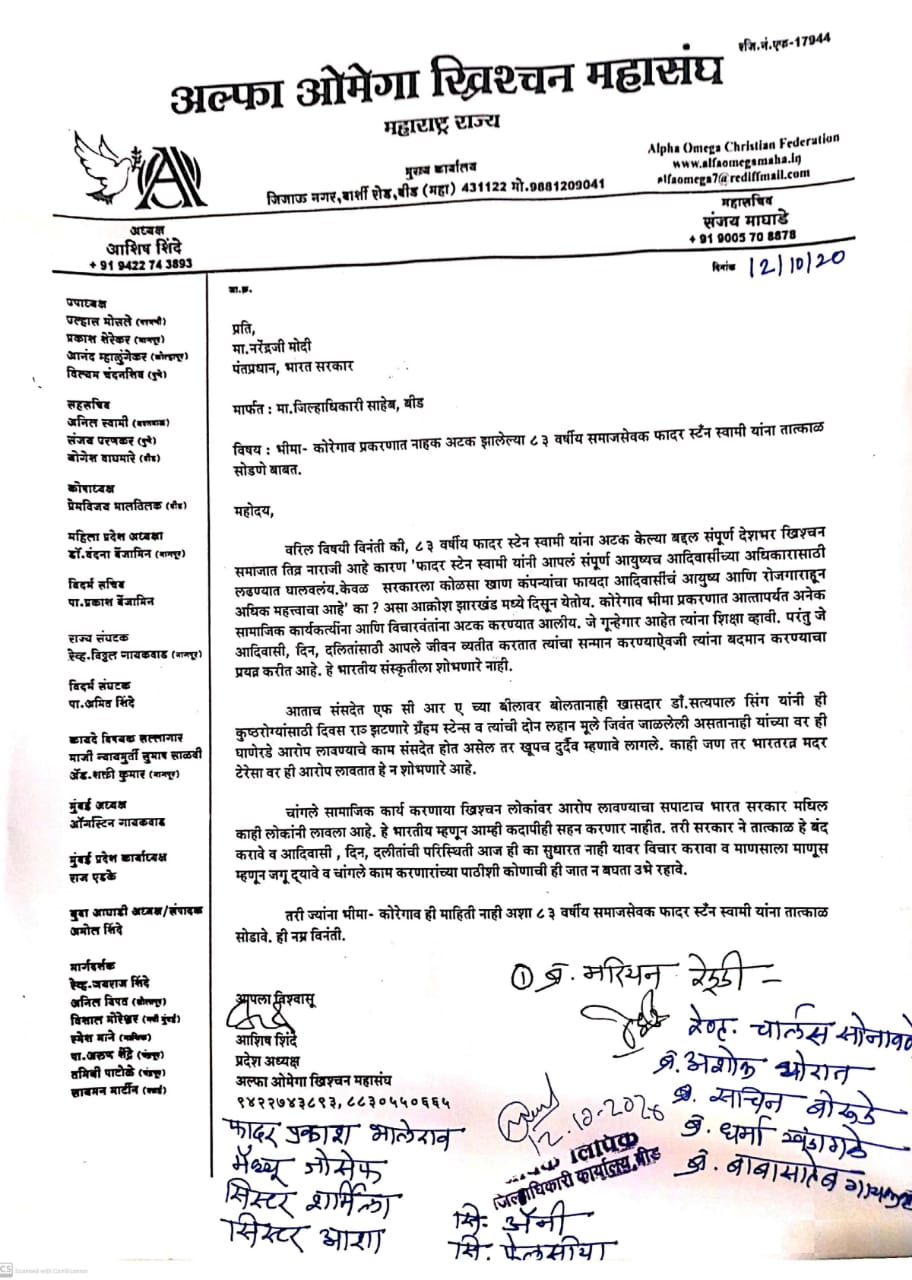 रजि.नं.एफ-17944
अल्फा ओमेगा ख्रिश्चन महासंघ
महाराष्ट्र राज्य
मुख्य कार्यालय
जिजाऊ नगर,बार्शी रोड,बीड (महा) 431122 मो.9881209041
Alpha Omega Christian Federation
www.alfaomegamaha.in
alfaomega7@rediffmail.com
अध्यक्ष
आशिष शिंदे
+ 91 9422 74 3893
महासचिव
संजय माघाडे
+ 91 9005 70 8878
दिनांक 12/10/20
उपाध्यक्ष
प्रकाश शेरेकर (नागपूर)
आनंद म्हाळुंगेकर (कोल्हापूर)
विल्यम चंदनशिव (पुणे)
सहसचिव
अनिल स्वामी
संजय परणकर (पुणे)
योगेश वाघमारे (बीड)
कोषाध्यक्ष
प्रेमविजय मालतिलक (बीड)
महिला प्रदेश अध्यक्षा
डॉ.वंदना बेंजामिन (नागपूर)
विदर्भ सचिव
पा.प्रकाश बेंजामिन
राज्य संघटक
रेव्ह.विठ्ठल गायकवाड (नागपूर)
विदर्भ संघटक
पा.अमित शिंदे
कायदे विषयक सल्लागार
माजी न्यायमुर्ती सुभाष साळवी
ॲड.शक्ती कुमार (नागपूर)
मुंबई अध्यक्ष
ऑगस्टिन गायकवाड
मुंबई प्रदेश कार्याध्यक्ष
राज एडके
युवा आघाडी अध्यक्ष/संपादक
अमोल शिंदे
मार्गदर्शक
रेव्ह.जयराज शिंदे
अनिल विपत (सोलापूर)
विशाल मोरेश्वर (नवी मुंबई)
रमेश माने (नाशिक)
पा.अरुण शेंद्रे (चंद्रपूर)
सायमन मार्टीन (वसई)
जा.क्र.
प्रति,
मा.नरेंद्रजी मोदी
पंतप्रधान, भारत सरकार
मार्फत : मा.जिल्हाधिकारी साहेब, बीड
विषय : भीमा- कोरेगाव प्रकरणात नाहक अटक झालेल्या ८३ वर्षीय समाजसेवक फादर स्टॅन स्वामी यांना तात्काळ
सोडणे बाबत.
महोदय,
वरिल विषयी विनंती की, ८३ वर्षीय फादर स्टेन स्वामी यांना अटक केल्या बद्दल संपूर्ण देशभर ख्रिश्चन
समाजात तिव्र नाराजी आहे कारण 'फादर स्टेन स्वामी यांनी आपलं संपूर्ण आयुष्यच आदिवासींच्या अधिकारासाठी
लढण्यात घालवलंय.केवळ सरकारला कोळसा खाण कंपन्यांचा फायदा आदिवासींचं आयुष्य आणि रोजगाराहून
अधिक महत्त्वाचा आहे' का ? असा आक्रोश झारखंड मध्ये दिसून येतोय. कोरेगाव भीमा प्रकरणात आत्तापर्यंत अनेक
सामाजिक कार्यकर्त्यांना आणि विचारवंतांना अटक करण्यात आलीय. जे गून्हेगार आहेत त्यांना शिक्षा व्हावी. परंतु जे
आदिवासी, दिन, दलितांसाठी आपले जीवन व्यतीत करतात त्यांचा सन्मान करण्याऐवजी त्यांना बदमान करण्याचा
प्रयत्न करीत आहे. हे भारतीय संस्कृतीला शोभणारे नाही.
आताच संसदेत एफ सी आर ए च्या बीलावर बोलतानाही खासदार डॉ.सत्यपाल सिंग यांनी ही
कुष्ठरोग्यांसाठी दिवस राञ झटणारे ग्रॅहम स्टेन्स व त्यांची दोन लहान मूले जिवंत जाळलेली असतानाही यांच्या वर ही
घाणेरडे आरोप लावण्याचे काम संसदेत होत असेल तर खूपच दुर्दैव म्हणावे लागले. काही जण तर भारतरत्न मदर
टेरेसा वर ही आरोप लावतात हे न शोभणारे आहे.
चांगले सामाजिक कार्य करणाया ख्रिश्चन लोकांवर आरोप लावण्याचा सपाटाच भारत सरकार मधिल
काही लोकांनी लावला आहे. हे भारतीय म्हणून आम्ही कदापीही सहन करणार नाहीत. तरी सरकार ने तात्काळ हे बंद
करावे व आदिवासी , दिन, दलीतांची परिस्थिती आज ही का सुधारत नाही यावर विचार करावा व माणसाला माणूस
म्हणून जगू द्यावे व चांगले काम करणारांच्या पाठीशी कोणाची ही जात न बघता उभे रहावे.
तरी ज्यांना भीमा- कोरेगाव ही माहिती नाही अशा ८३ वर्षीय समाजसेवक फादर स्टॅन स्वामी यांना तात्काळ
सोडावे. ही नम्र विनंती.
आपला विश्वासू
आशिष शिंदे
प्रदेश अध्यक्ष
अल्फा ओमेगा ख्रिश्चन महासंघ
९४२२७४३८९३, ८८३०५५०६६५
फादर प्रकाश भालेराव
मॅथ्यू जोसेफ
सिस्टर शर्मिला
सिस्टर आशा
① ब्र. मरियन रेड्डी
रेव्ह. चार्लस सोनावणे
ब्र. अशोक थोरात
ब्र. सचिन बोरुडे
ब्र. धर्मा खंडागळे
ब्र. बाबासाहेब
लिपिक
जिल्हाधिकारी कार्यालय,बीड
सि. ॲनी
सि. फेलसीया
CS Scanned with CamScanner